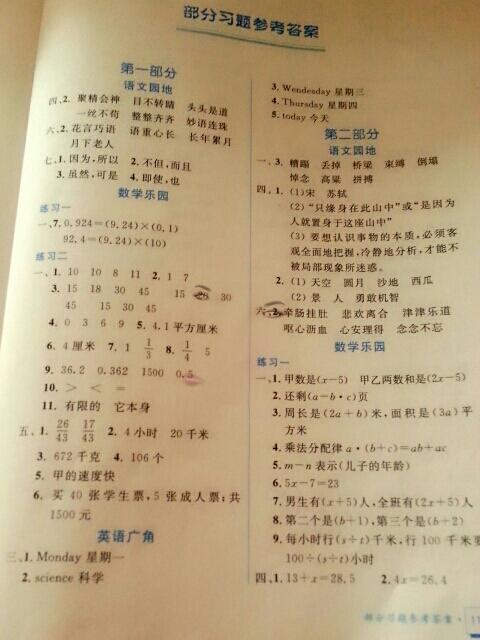 部分习题参考答案
第一部分
语文园地
四、2. 聚精会神 目不转睛 头头是道
一丝不苟 整整齐齐 妙语连珠
六、2. 花言巧语 语重心长 长年累月
月下老人
七、1. 因为，所以 2. 不但，而且
3. 虽然，可是 4. 即使，也
数学乐园
练习一
一、7. 0.924=(9.24)×(0.1)
92.4=(9.24)×(10)
练习二
一、1. 10 10 8 11 2. 1 7
3. 15 18 30 45 15 20 30
45 15 30 45
4. 0 3 6 9 5. 4.1平方厘米
6. 4厘米 7. 1 1/3 8. 1/4 5
9. 36.2 0.362 1500 0.5
10. > < =
11. 有限的 它本身
五、1. 26/43 17/43 2. 4小时 20千米
3. 672千克 4. 106个
5. 甲的速度快
6. 买40张学生票，5张成人票；共
1500元
英语广角
三、1. Monday 星期一
2. science 科学
3. Wendesday 星期三
4. Thursday 星期四
5. today 今天
第二部分
语文园地
一、3. 糟蹋 丢掉 桥梁 束缚 倒塌
悼念 高粱 拼搏
四、1. (1)宋 苏轼
(2)“只缘身在此山中”或“是因为
人就置身于这座山中”
(3)要想认识事物的本质，必须客
观全面地把握，冷静地分析，才能不
被局部现象所迷惑。
2. (1)天空 圆月 沙地 西瓜
(2)景 人 勇敢机智
六、2. 牵肠挂肚 悲欢离合 津津乐道
呕心沥血 心安理得 念念不忘
数学乐园
练习一
一、1. 甲数是(x−5) 甲乙两数和是(2x−5)
2. 还剩(a−b·c)页
3. 周长是(2a+b)米，面积是(3a)平
方米
4. 乘法分配律 a·(b+c)=ab+ac
5. m−n表示(儿子的年龄)
6. 5x−7=23
7. 男生有(x+5)人，全班有(2x+5)人
8. 第二个是(b+1)，第三个是(b+2)
9. 每小时行(s÷t)千米，行100千米要
100÷(s÷t)小时
四、1. 13+x=28.5 2. 4x=26.4
部分习题参考答案·